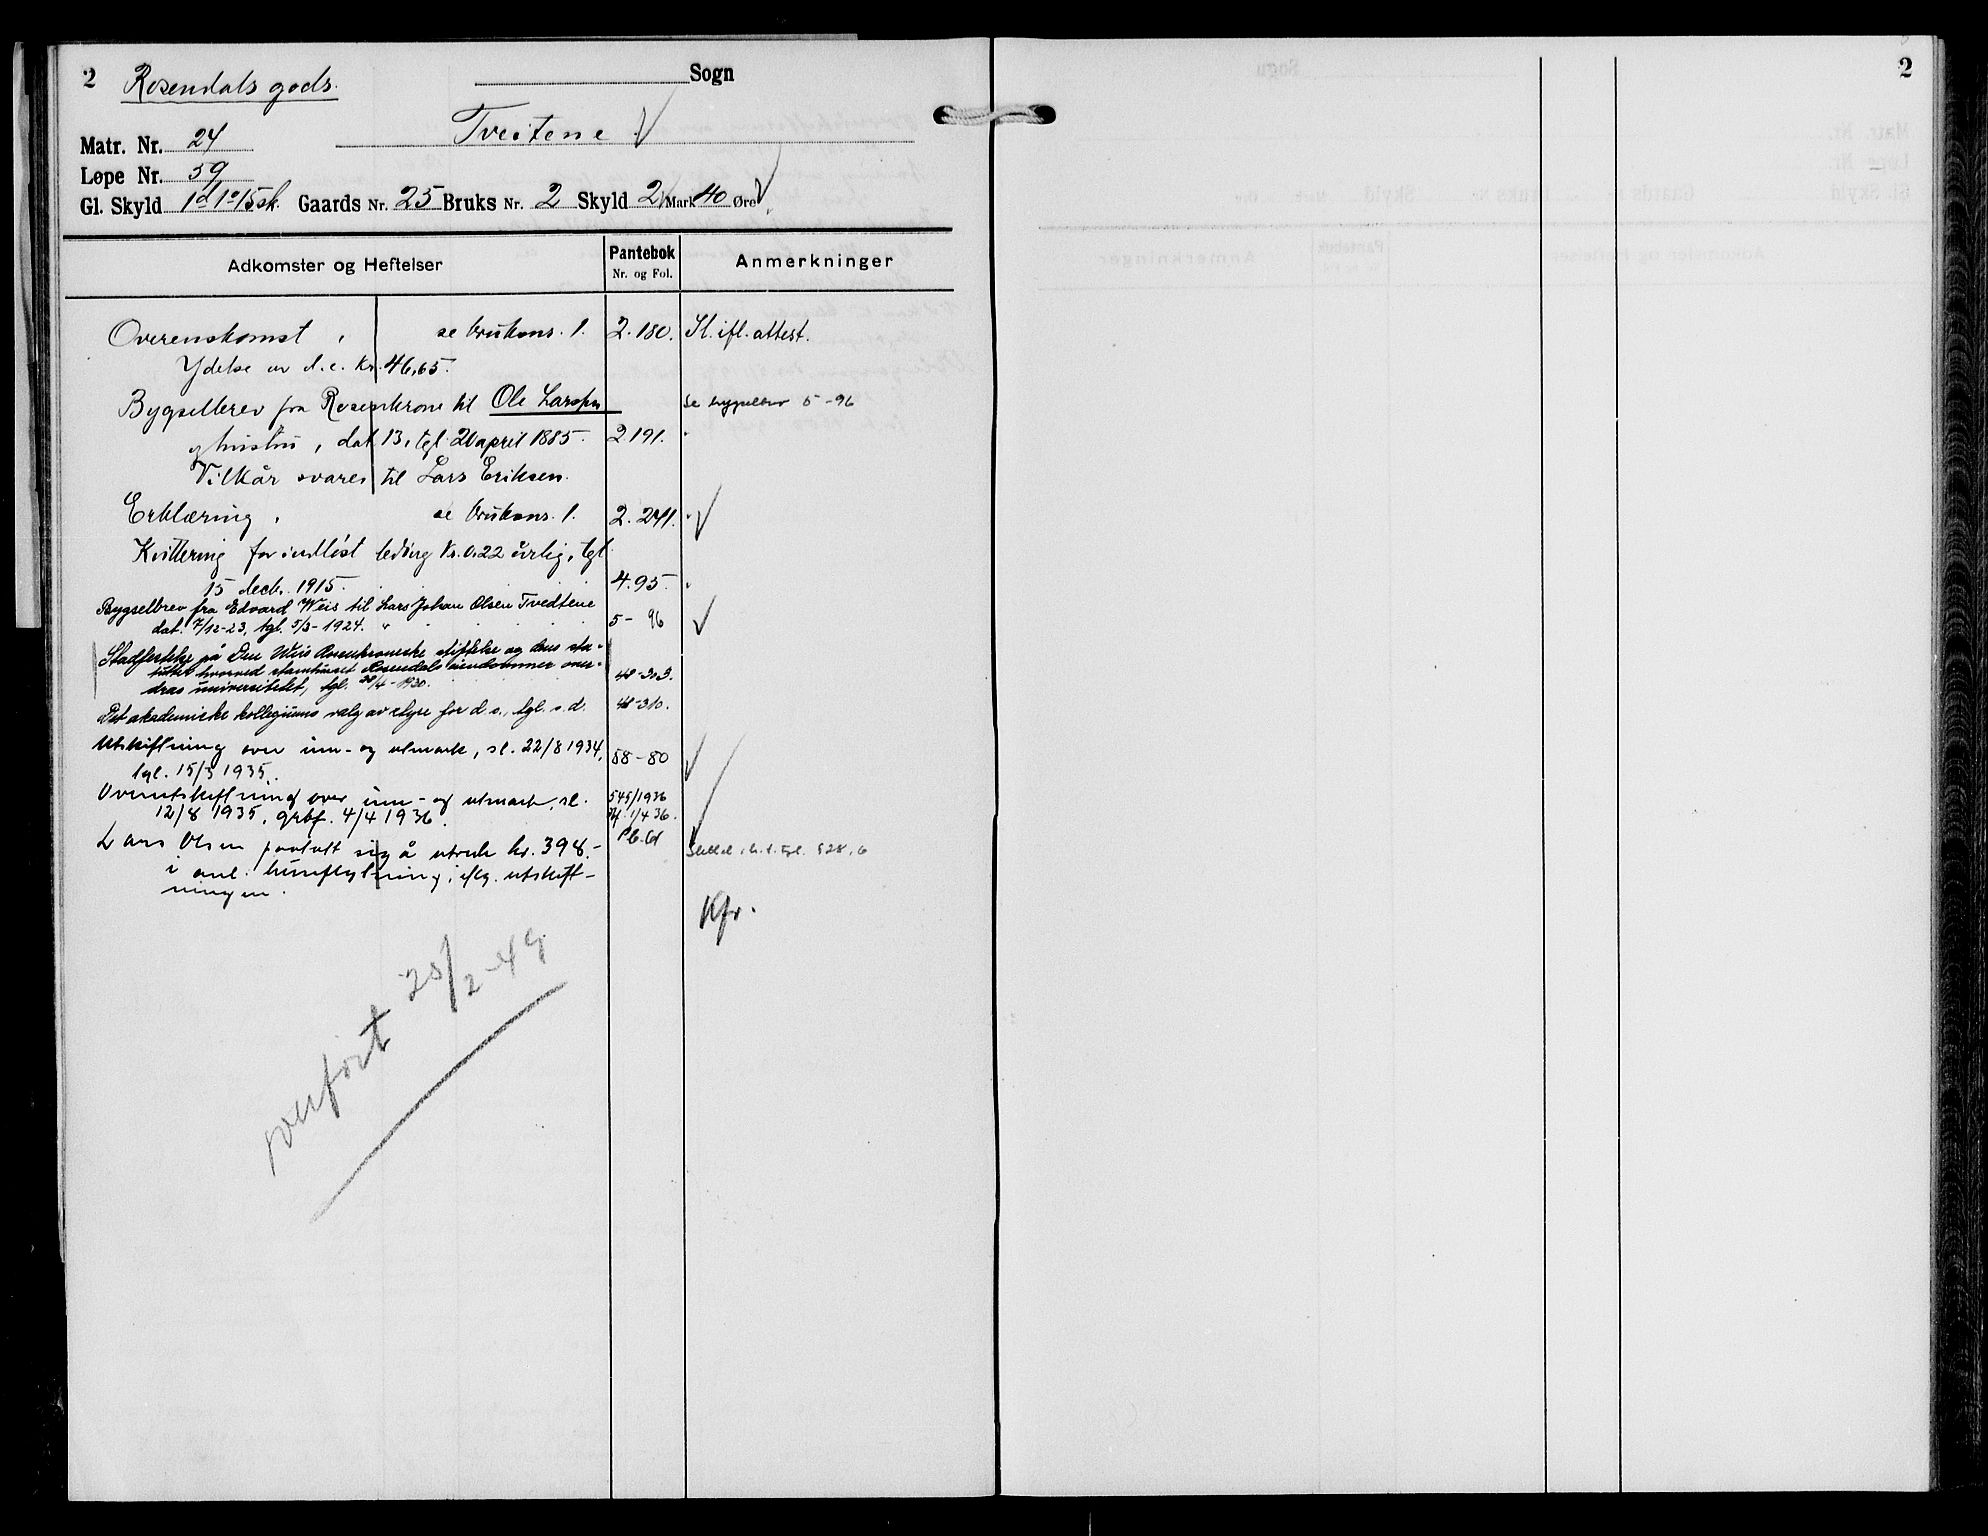 2 Rosendals gods. Sogn
Matr. Nr. 24 Tveitene
Løpe Nr. 59
Gl. Skyld 1d 1o 15 sk. Gaards Nr. 25 Bruks Nr. 2 Skyld 2 Mark 40 Øre
Adkomster og Heftelser Pantebok Nr. og Fol. Anmerkninger
Overenskomst, se bruksnr. 1. 2. 180. Sl. ifl. attest.
Ydelse av d.e. kr. 46,65.
Bygselbrev fra Rosenkrone til Ole Larsen Se bygselbrev 5-96
og hustru, dat. 13, tgl. 20 april 1885. 2 191. "
Vilkår svares til Lars Eriksen.
Erklæring, se bruksnr. 1. 2. 241. "
Kvittering for indløst leding kr. 0.22 årlig, tgl.
15 decbr. 1915. 4. 95. "
Bygselbrev fra Edvard Weis til Lars Johan Olsen Tvedtene
dat. 7/12-23, tgl. 5/3-1924. 5- 96
Stadfestelse på Den Weis Rosenkroneske stiftelse og dens sta-
tutter hvorved stamhuset Rosendals eiendommer over-
dras universitetet, tgl. 28/4-1930. 48-303.
Det akademiske kollegiums valg av styre for d.s., tgl. s.d. 48-310.
Utskiftning over inn- og utmark, sl. 22/8 1934,
tgl. 15/3 1935. 58-80
Overutskiftning over inn- og utmark, sl. 545/1936
12/8 1935, grbf. 4/4 1936. 1/4 36.
Lars Olsen påtatt sig å utrede kr. 398.- Pb. 61
i anl. husflytning, iflg. utskift-
ningen.
Kfr.
overført 25/2-49
2